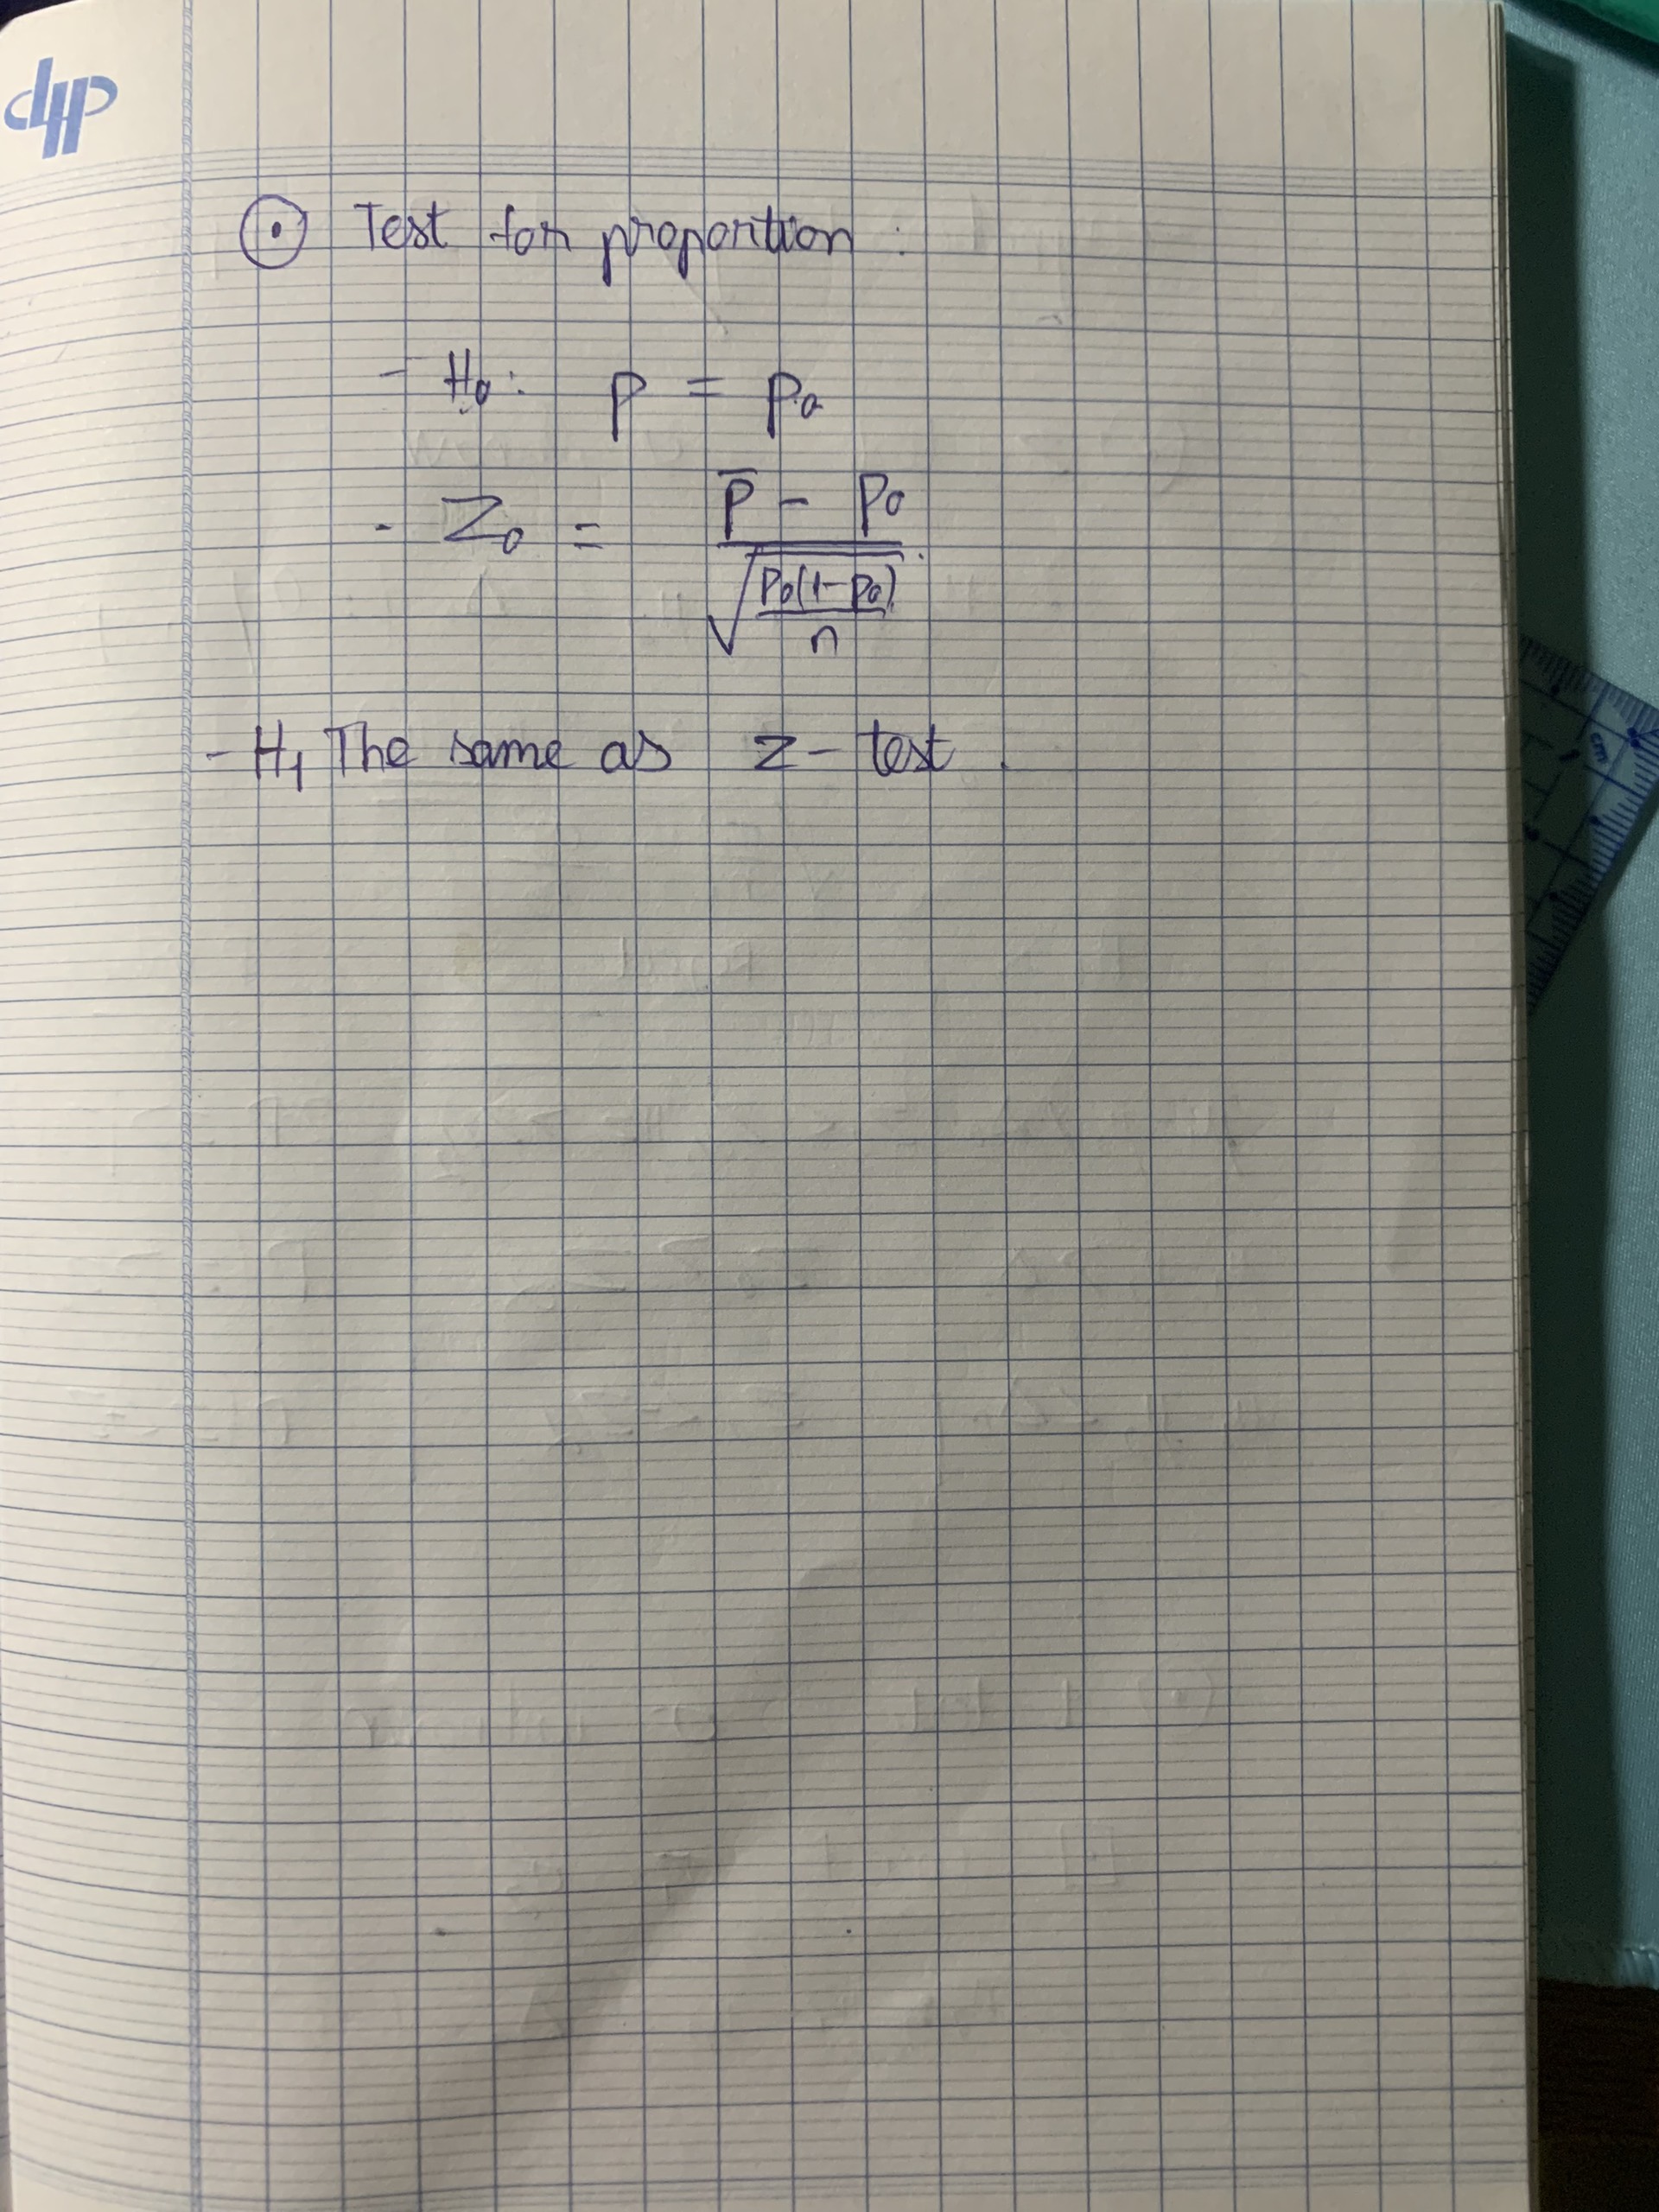 ⊙ Test for proportion :
- H₀: p = p₀
- Z₀ = (p̅ - p₀) / √(p₀(1-p₀)/n)
- H₁ The same as z-test.